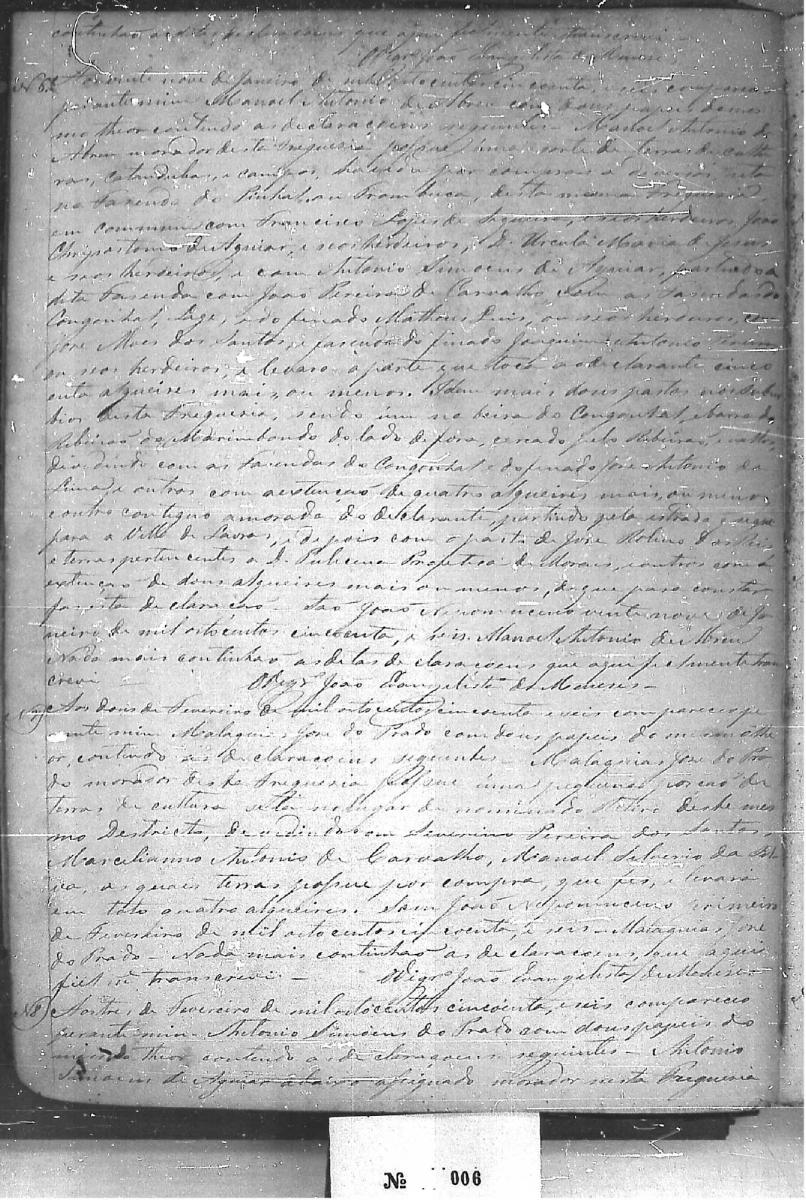 continhão as ditas declaracoens que aqui fielmente transcrevi –
O Vigrº João Evangelista de Meneses
Nº 6 Aos vinte nove de Janeiro de mil oitocentos cincoenta, e seis compareceo
perante mim Manoel Antonio de Abreu com dous papeis do mes
mo theor contendo as declaracoens seguintes – Manoel Antonio de
Abreu morador desta Freguesia possue uma sorte de terras de cultu
ras, catandubas, e campos, havida por compras a diversos, sita
na Fazenda do Pinhal, ou Trombuca, desta mesma Freguesia
em commum com Francisco Lopes de Siqueira, e seos herdeiros, João
Chrysostomo de Aguiar, e seos herdeiros, D. Ursula Maria de Jesus
e seos herdeiros, e com Antonio Simoens de Aguiar, partindo a
dita Fasenda com João Pereira de Carvalho, as Fasendas do
Congonhal, Lage, do finado Matheus Luis, ou seos herdeiros,
José Alves dos Santos, e fasenda do finado Joaquim Antonio
ou seos herdeiros, e levará a parte que toca ao declarante cinco
enta alqueires mais, ou menos. Idem mais dous pastos nos Subur
bios desta Freguesia, sendo um na beira do Congonhal, e barra do
Ribeirão do Marimbondo do lado de fora, cercado pelo Ribeirão, e vallo,
dividindo com as Fazendas do Congonhal e do finado José Antonio de
Lima, e outros com a extenção de quatro alqueires mais, ou menos
e outro contiguo a morada do declarante, partindo pela estrada q segue
para a Villa de Lavras, e depois com o pasto de José
e terras pertencentes a D. Pulicena Profetica de Morais, e outros com a
extenção de dous alqueires mais ou menos, de que para constar
faz esta declaração – São João Nepomuceno vinte nove de Ja
neiro de mil oitocentos cincoenta, e seis. Manoel Antonio de Abreu
Nada mais continhão as ditas declaracoens que aqui fielmente trans
crevi – O Vigrº João Evangelista de Meneses –
Nº 7 Aos dous de Fevereiro de mil oitocentos cincoenta e seis compareceo pe
rante mim Malaquias José do Prado com dous papeis do mesmo the
or, contendo as declaracoens seguintes – Malaquias José do Pra
do morador desta Freguesia possue uma pequena porcão de
terras de cultura sita no lugar denominado Retiro deste mes
mo Destricto, devidindo com Severino Pereira dos Santos,
Marcelianno Antonio de Carvalho, Manoel Silverio da Sil
va, as quais terras possue por compra, que fes, e levará
em todo quatro alqueires. Sam João Nepomuceno primeiro
de Fevereiro de mil oitocentos cincoenta, e seis – Malaquias José
do Prado – Nada mais continhão as declaracoens, que aqui
fielme transcrevi – O Vigrº João Evangelista de Meneses
Nº 8 Aos tres de Fevereiro de mil oitocentos cincoenta, e seis compareceo
perante mim Antonio Simoens do Prado com dous papeis do
mesmo theor contendo as declaracoens seguintes – Antonio
Simoens de Aguiar abaixo assignado morador nesta Freguesia
Nº 006